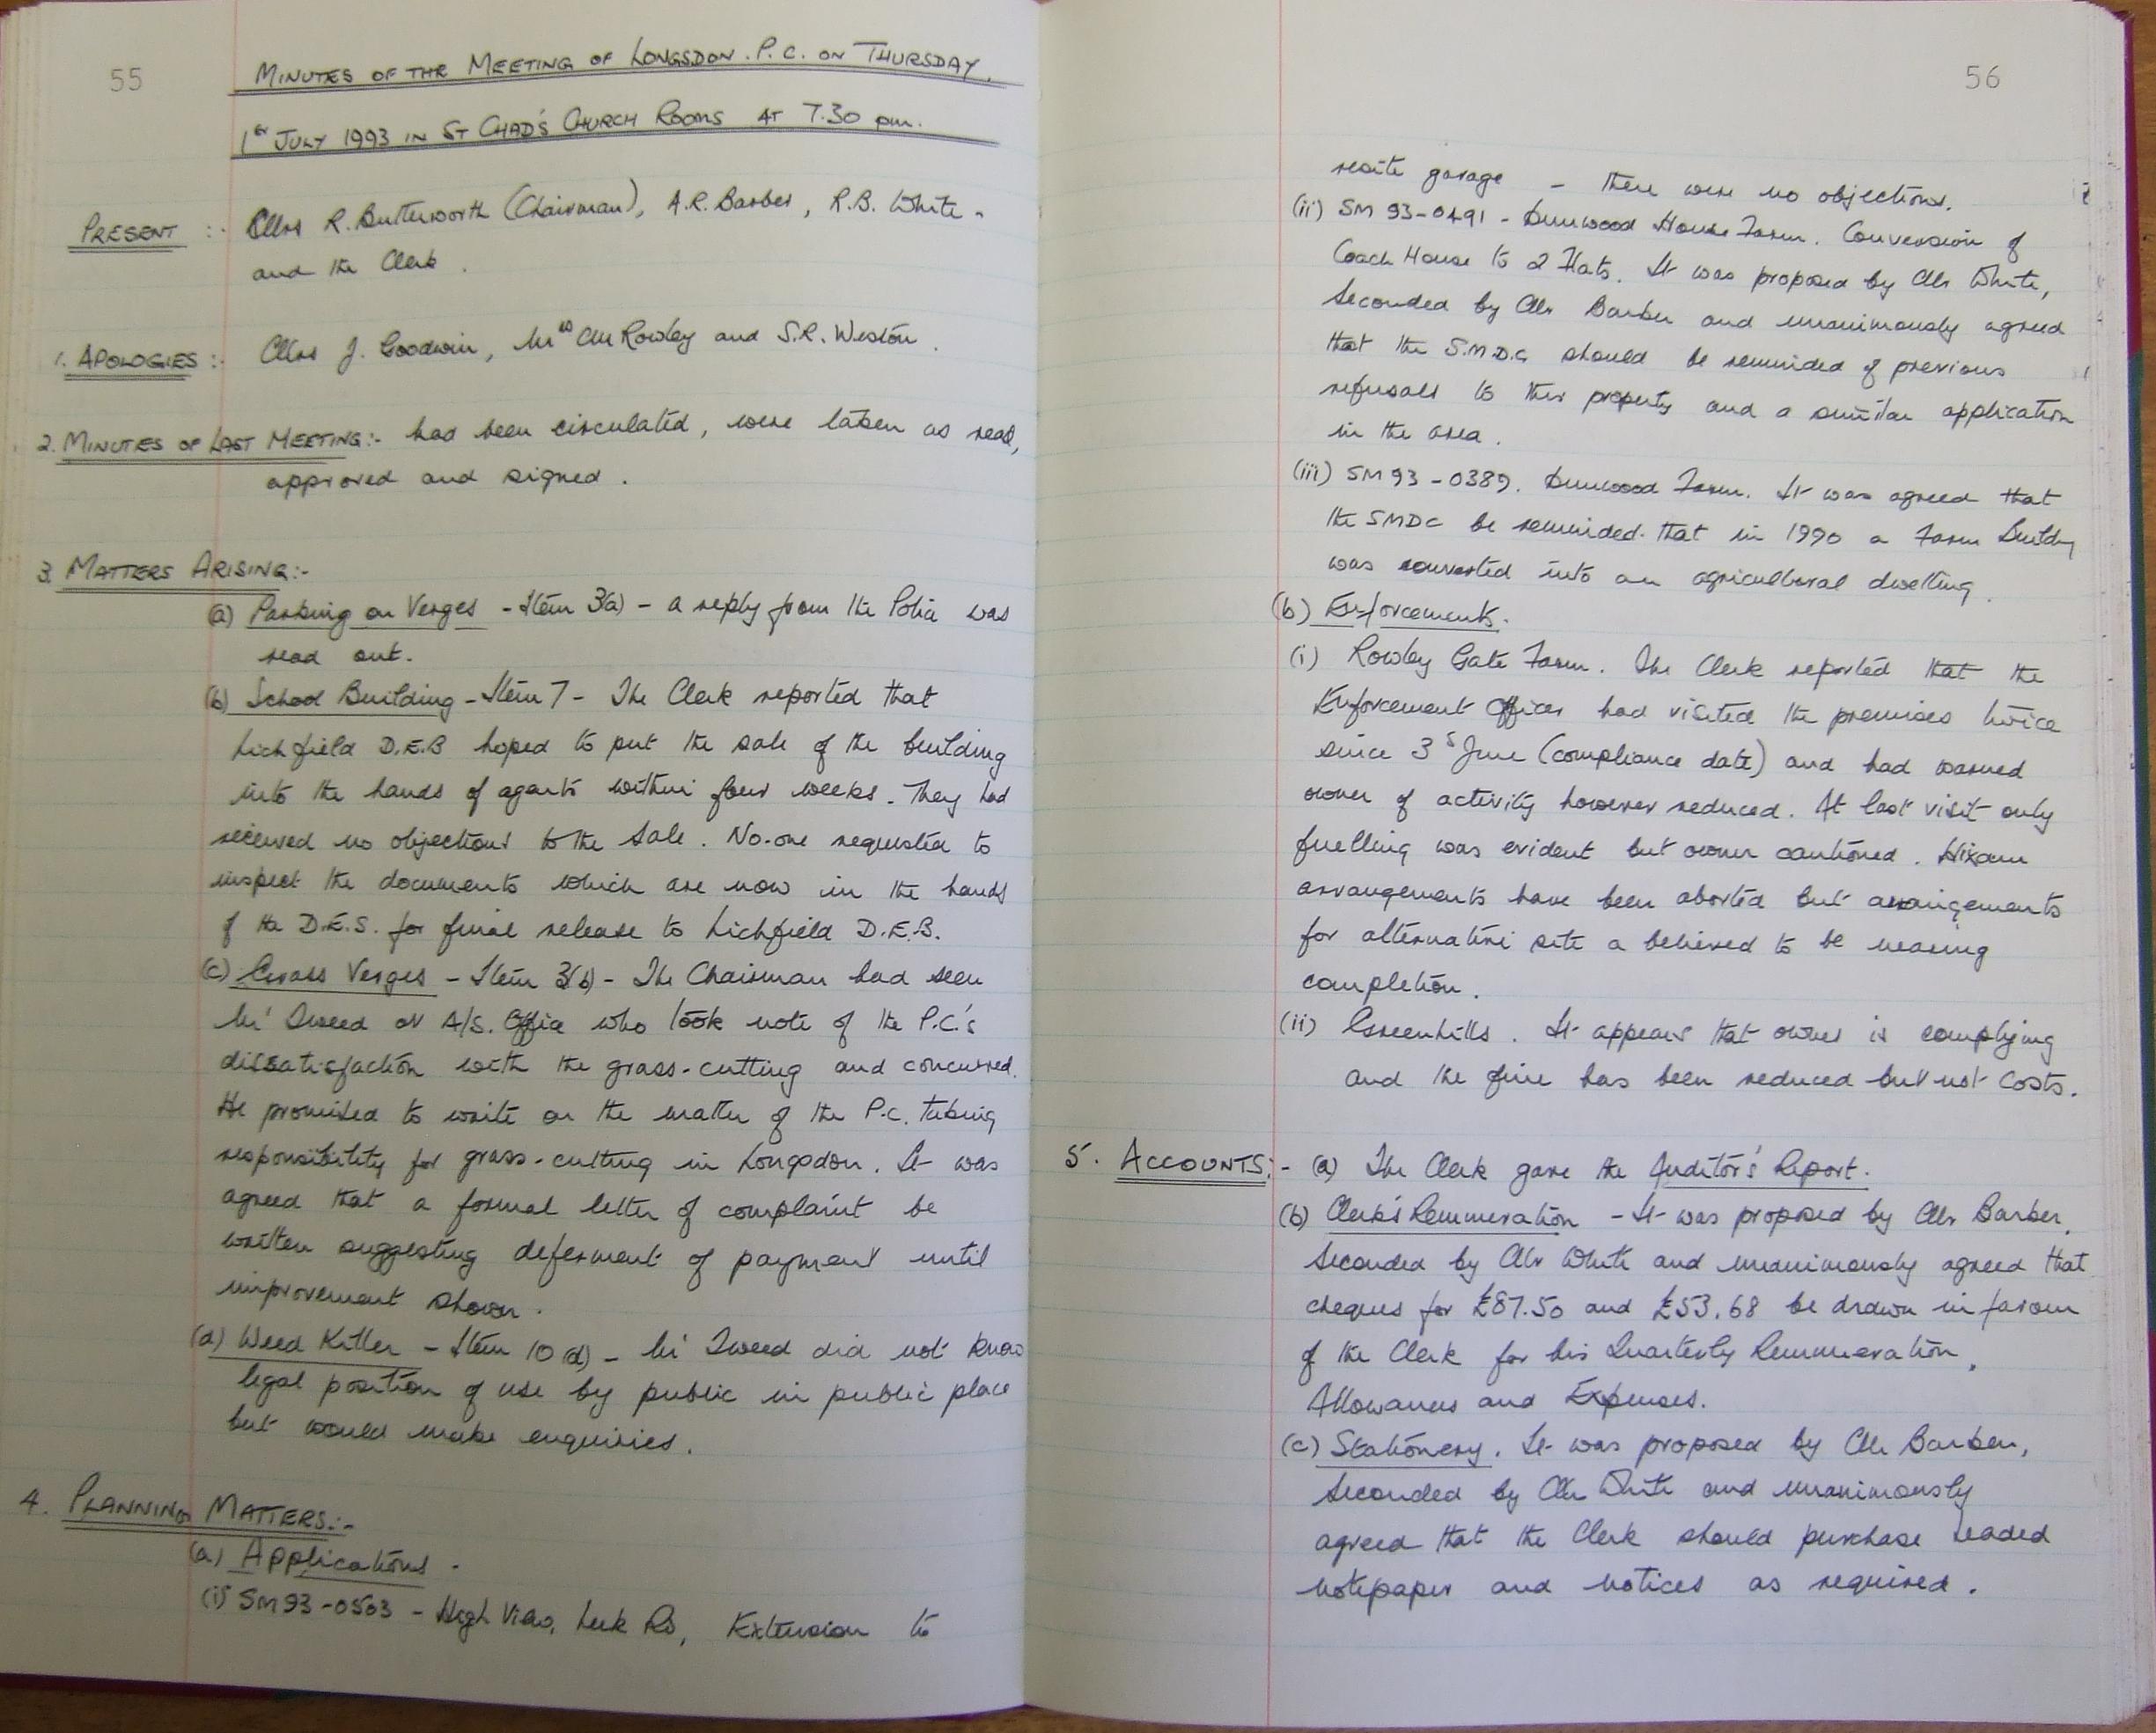 55
MINUTES OF THE MEETING OF LONGSDON. P. C. ON THURSDAY.
1st JULY 1993 IN ST CHAD'S CHURCH ROOMS AT 7.30 pm.
PRESENT :- Cllrs R. Butterworth (Chairman), A.R. Barber, R.B. White -
and the Clerk.
1. APOLOGIES :- Cllrs J. Goodwin, Mrs CM Rowley and S.R. Weston.
2. MINUTES OF LAST MEETING:- had been circulated, were taken as read,
approved and signed.
3. MATTERS ARISING:-
(a) Parking on Verges - Item 3(a) - a reply from the Police was
read out.
(b) School Building - Item 7 - The Clerk reported that
Lichfield D.E.B hoped to put the sale of the building
into the hands of agents within four weeks. They had
received no objections to the sale. No-one requested to
inspect the documents which are now in the hands
of the D.E.S. for final release to Lichfield D.E.B.
(c) Grass Verges - Item 3(b) - The Chairman had seen
Mr Tweed at A/S. Office who took note of the P.C.'s
dissatisfaction with the grass-cutting and concurred.
He promised to write on the matter of the P.C. taking
responsibility for grass-cutting in Longsdon. It was
agreed that a formal letter of complaint be
written suggesting deferment of payment until
improvement shown.
(d) Weed Killer - Item 10(d) - Mr Tweed did not know
legal position of use by public in public place
but would make enquiries.
4. PLANNING MATTERS:-
(a) Applications -
(i) SM93-0503 - High View, Leek Rd, Extension to
56
resite garage - there were no objections.
(ii) SM 93-0491 - Dunwood House Farm. Conversion of
Coach House to 2 Flats. It was proposed by Cllr White,
seconded by Cllr Barber and unanimously agreed
that the S.M.D.C. should be reminded of previous
refusals to this property and a similar application
in the area.
(iii) SM 93-0389. Dunwood Farm. It was agreed that
the SMDC be reminded that in 1990 a Farm Building
was converted into an agricultural dwelling.
(b) Enforcements.
(i) Rowley Gate Farm. The Clerk reported that the
Enforcement Officer had visited the premises twice
since 3 June (compliance date) and had warned
owner of activity however reduced. At last visit only
fuelling was evident but owner cautioned. Hixon
arrangements have been aborted but arrangements
for alternative site a believed to be nearing
completion.
(ii) Greenhills. It appears that owner is complying
and the fine has been reduced but not costs.
5. ACCOUNTS:- (a) The Clerk gave the Auditor's Report.
(b) Clerk's Remuneration - It was proposed by Cllr Barber,
seconded by Cllr White and unanimously agreed that
cheques for £87.50 and £53.68 be drawn in favour
of the Clerk for his Quarterly Remuneration,
Allowances and Expenses.
(c) Stationery. It was proposed by Cllr Barber,
seconded by Cllr White and unanimously
agreed that the Clerk should purchase headed
notepaper and notices as required.